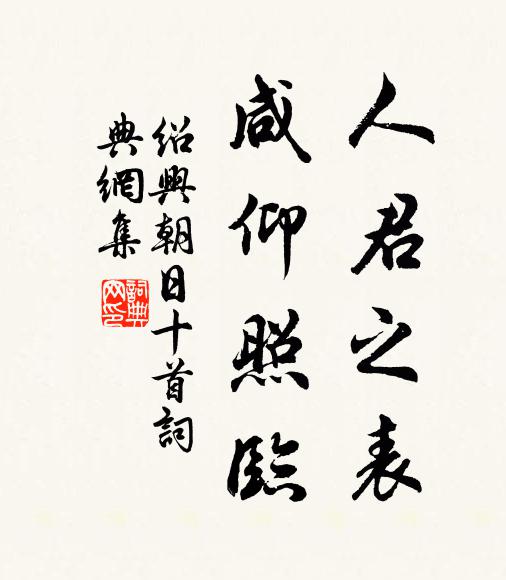 人君之表
咸仰照臨
紹興朝日十首詞
典網集
詞典网印